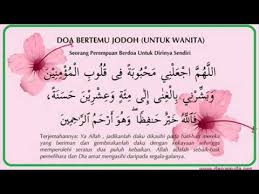 DOA BERTEMU JODOH (UNTUK WANITA)
Seorang Perempuan Berdoa Untuk Dirinya Sendiri
اَللّٰهُمَّ اجْعَلْنِي مَحْبُوْبَةً فِي قُلُوْبِ الْمُؤْمِنِيْنَ
وَبَشِّرْنِي بِالْغِنَى إِلَى مِئَةٍ وَعِشْرِيْنَ حَسَنَةً،
فَاللّٰهُ خَيْرٌ حَفِظًا وَهُوَ أَرْحَمُ الرَّاحِمِيْنَ
Terjemahannya: Ya Allah, jadikanlah daku dikasihi pada hati-hati mereka
yang beriman dan gembirakanlah daku dengan kekayaan sehingga
memperolehi seratus dua puluh kebaikan. Allah adalah sebaik-baik
pemelihara dan Dia amat mengasihi daripada segala-galanya.